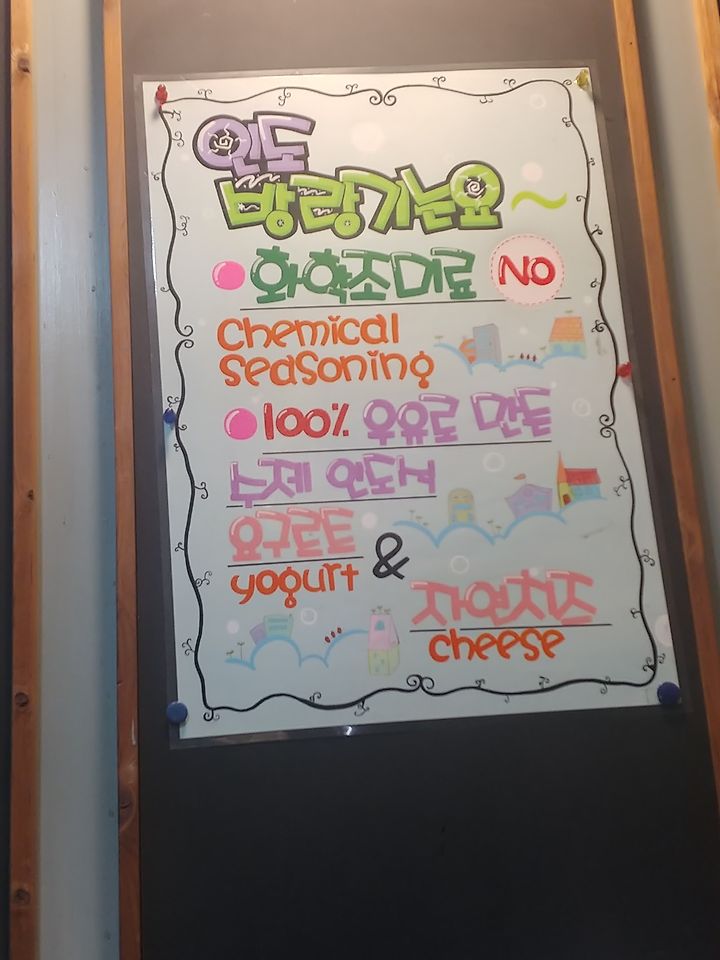 인도
방랑기는요~
화학조미료 NO
Chemical
seasoning
100% 우유로 만든
수제 인도식
요구르트
yogurt &
자연치즈
cheese